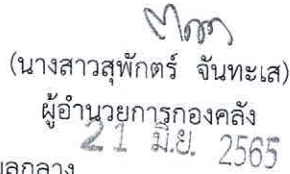 (นางสาวสุพักตร์ จันทะเส)
ผู้อำนวยการกองคลัง
21 มิ.ย. 2565